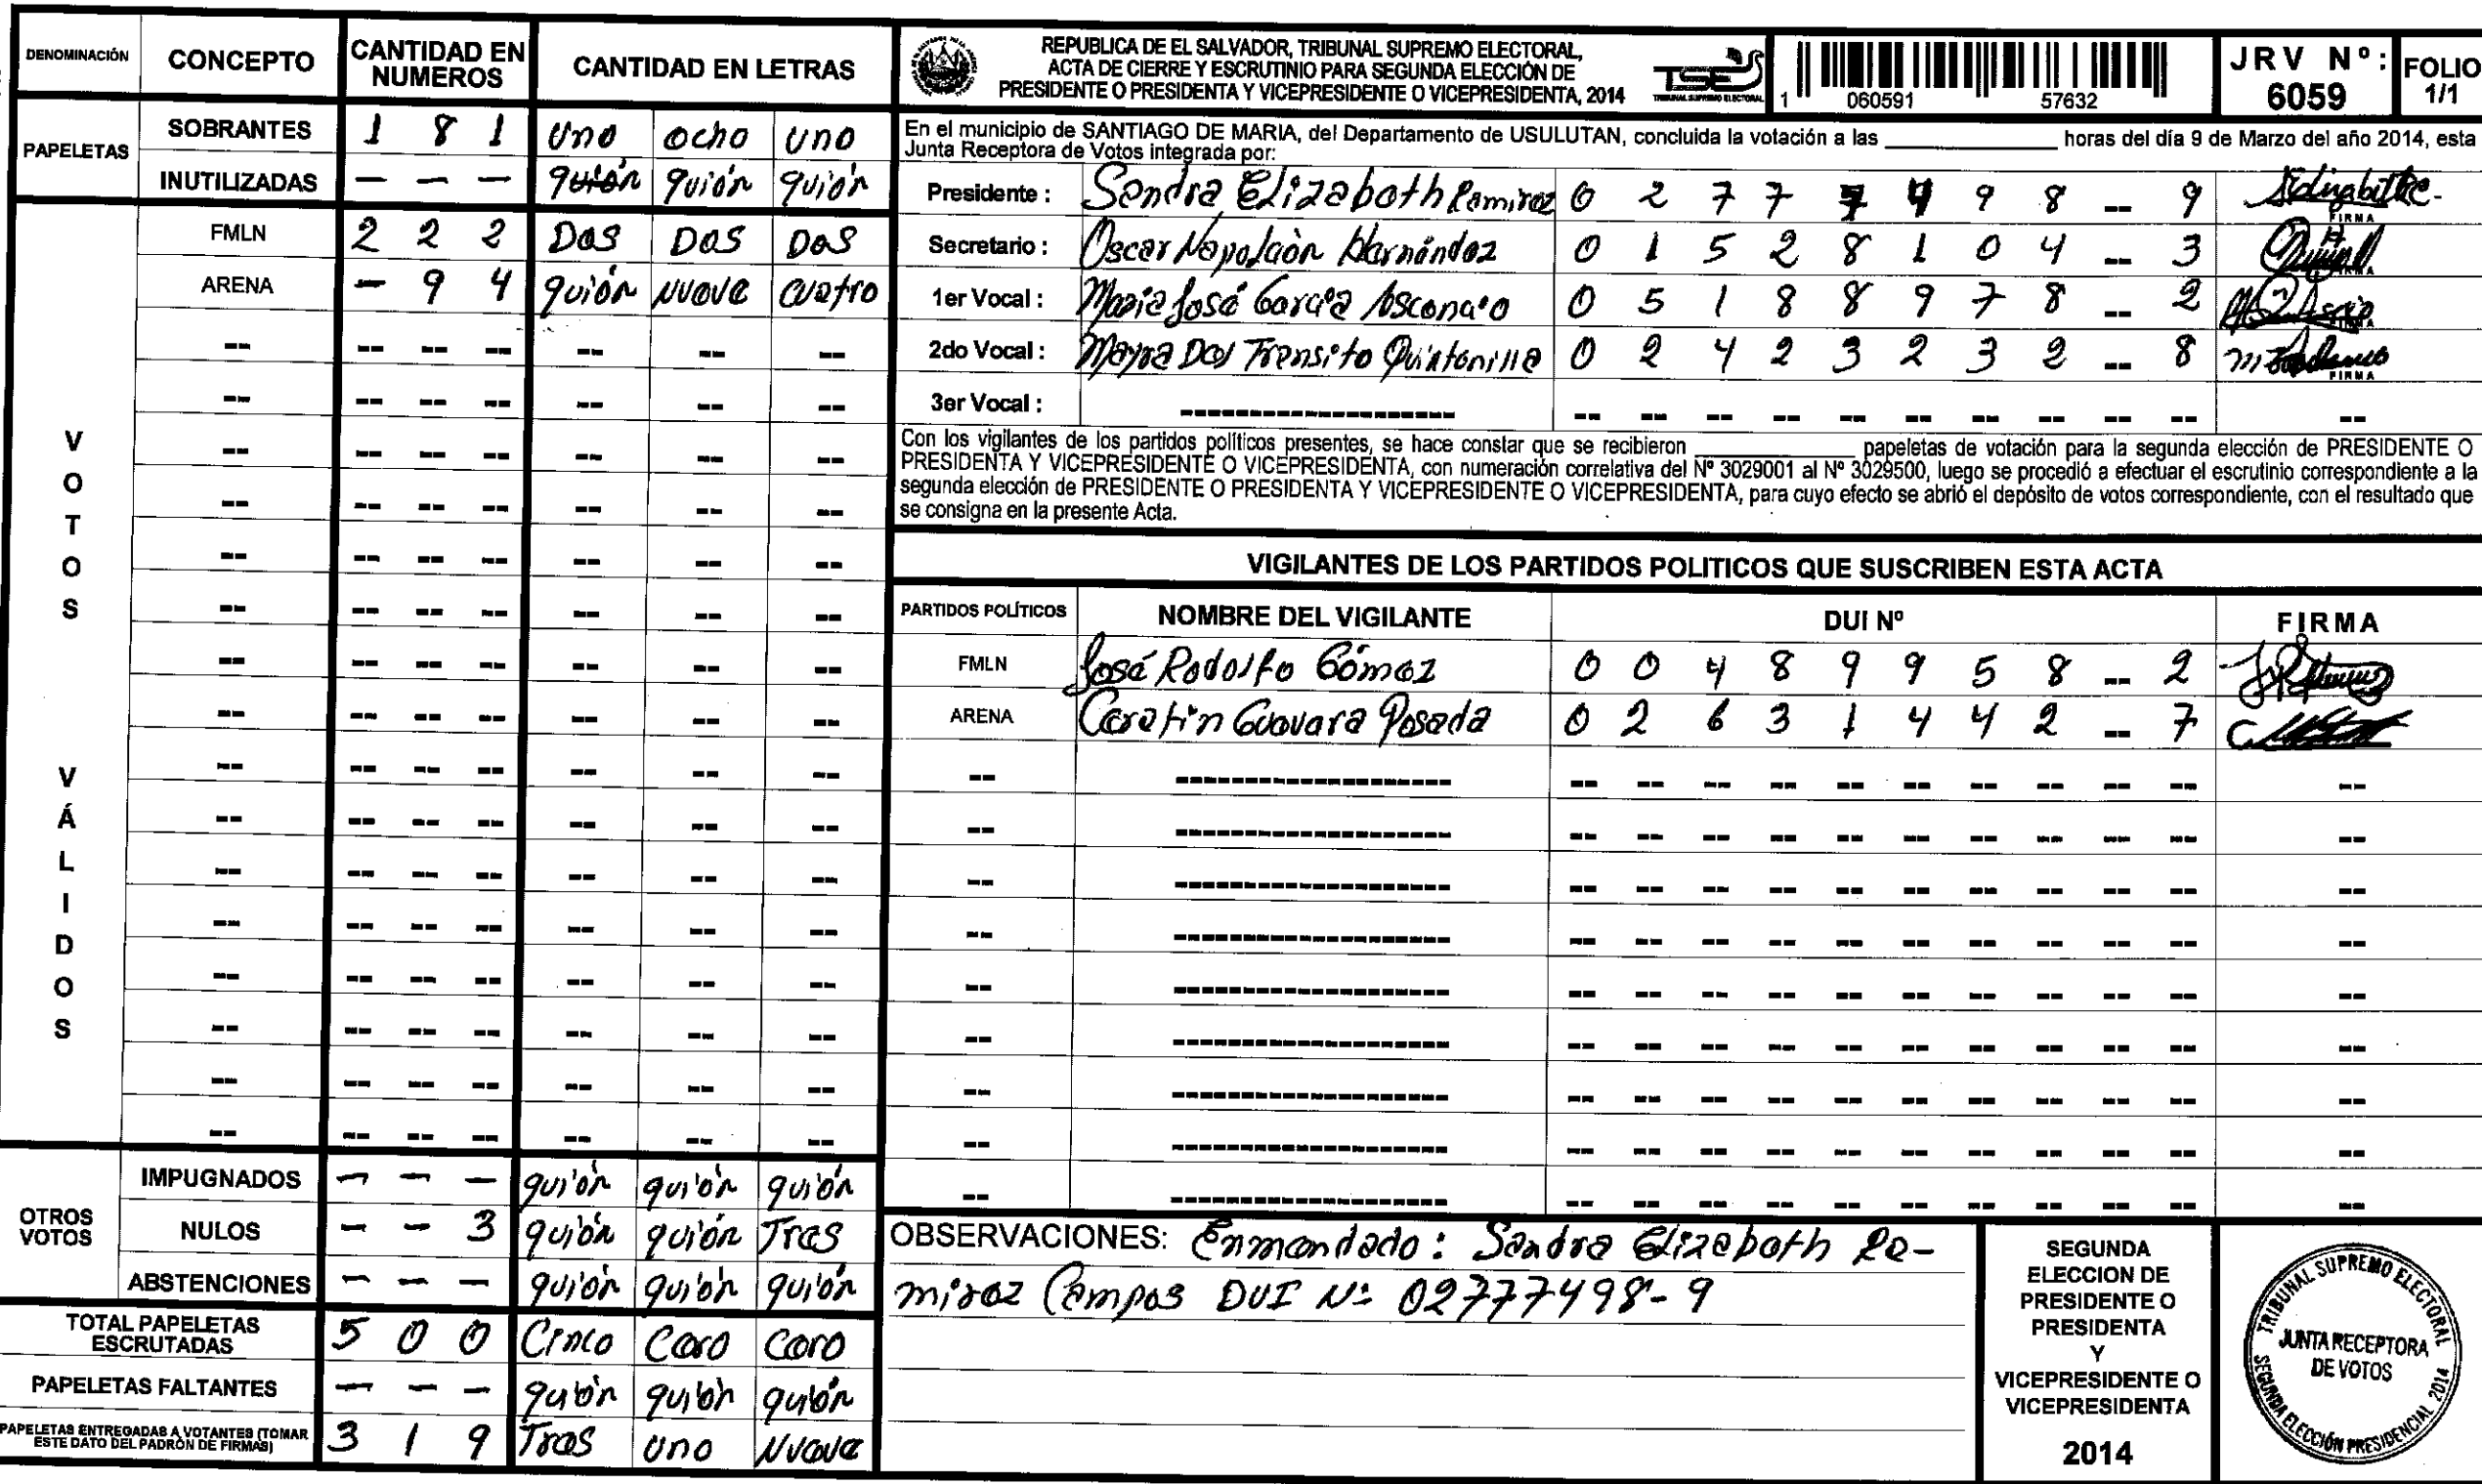 DENOMINACIÓN CONCEPTO CANTIDAD EN NUMEROS CANTIDAD EN LETRAS
PAPELETAS
SOBRANTES 1 8 1 uno ocho uno
INUTILIZADAS — — — guión guión guión
VOTOS VÁLIDOS
FMLN 2 2 2 Dos Dos Dos
ARENA - 9 4 guión nueve cuatro
OTROS VOTOS
IMPUGNADOS — — — guión guión guión
NULOS — — 3 guión guión Tres
ABSTENCIONES — — — guión guión guión
TOTAL PAPELETAS ESCRUTADAS 5 0 0 Cinco Cero Cero
PAPELETAS FALTANTES — — — guión guión guión
PAPELETAS ENTREGADAS A VOTANTES (TOMAR ESTE DATO DEL PADRÓN DE FIRMAS) 3 1 9 Tres uno Nueve
REPUBLICA DE EL SALVADOR, TRIBUNAL SUPREMO ELECTORAL,
ACTA DE CIERRE Y ESCRUTINIO PARA SEGUNDA ELECCIÓN DE
PRESIDENTE O PRESIDENTA Y VICEPRESIDENTE O VICEPRESIDENTA, 2014
TSE
TRIBUNAL SUPREMO ELECTORAL
1 060591 57632
JRV Nº: 6059
FOLIO 1/1
En el municipio de SANTIAGO DE MARIA, del Departamento de USULUTAN, concluida la votación a las ____________ horas del día 9 de Marzo del año 2014, esta
Junta Receptora de Votos integrada por:
Presidente : Sandra Elizabeth Ramirez 0 2 7 7 7 4 9 8 -- 9 FIRMA
Secretario : Oscar Napoleón Hernández 0 1 5 2 8 1 0 4 -- 3
1er Vocal : Maria José García Ascencio 0 5 1 8 8 9 7 8 -- 2
2do Vocal : Mayra Del Transito Quintanilla 0 2 4 2 3 2 3 2 -- 8 FIRMA
3er Vocal : -- -- -- -- -- -- -- -- -- -- --
Con los vigilantes de los partidos políticos presentes, se hace constar que se recibieron ____________ papeletas de votación para la segunda elección de PRESIDENTE O
PRESIDENTA Y VICEPRESIDENTE O VICEPRESIDENTA, con numeración correlativa del Nº 3029001 al Nº 3029500, luego se procedió a efectuar el escrutinio correspondiente a la
segunda elección de PRESIDENTE O PRESIDENTA Y VICEPRESIDENTE O VICEPRESIDENTA, para cuyo efecto se abrió el depósito de votos correspondiente, con el resultado que
se consigna en la presente Acta.
VIGILANTES DE LOS PARTIDOS POLITICOS QUE SUSCRIBEN ESTA ACTA
PARTIDOS POLÍTICOS NOMBRE DEL VIGILANTE DUI Nº FIRMA
FMLN José Rodolfo Gómez 0 0 4 8 9 9 5 8 -- 2
ARENA Guevara Posada 0 2 6 3 1 4 4 2 -- 7
OBSERVACIONES: Enmendado: Sandra Elizabeth Ra-
mirez Campos DUI Nº 02777498-9
SEGUNDA
ELECCION DE
PRESIDENTE O
PRESIDENTA
Y
VICEPRESIDENTE O
VICEPRESIDENTA
2014
TRIBUNAL SUPREMO ELECTORAL
JUNTA RECEPTORA
DE VOTOS
SEGUNDA ELECCIÓN PRESIDENCIAL 2014